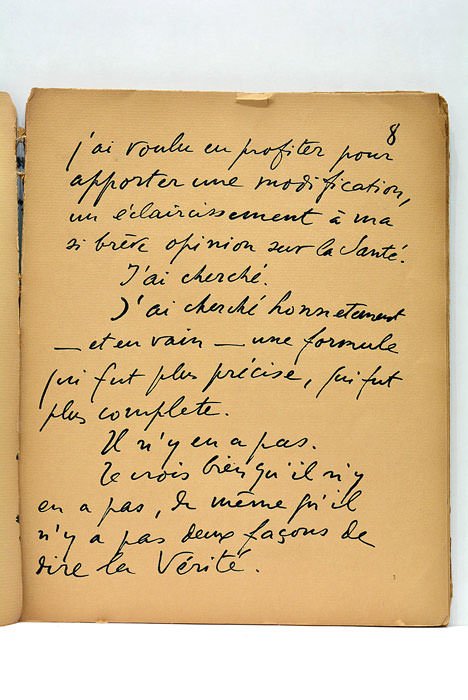 8
j'ai voulu en profiter pour
apporter une modification,
un éclaircissement à ma
si brève opinion sur la Santé.
J'ai cherché.
J'ai cherché honnetement
— et en vain — une formule
qui fut plus précise, qui fut
plus complete.
Il n'y en a pas.
Je crois bien qu'il n'y
en a pas, de même qu'il
n'y a pas deux façons de
dire la Vérité.